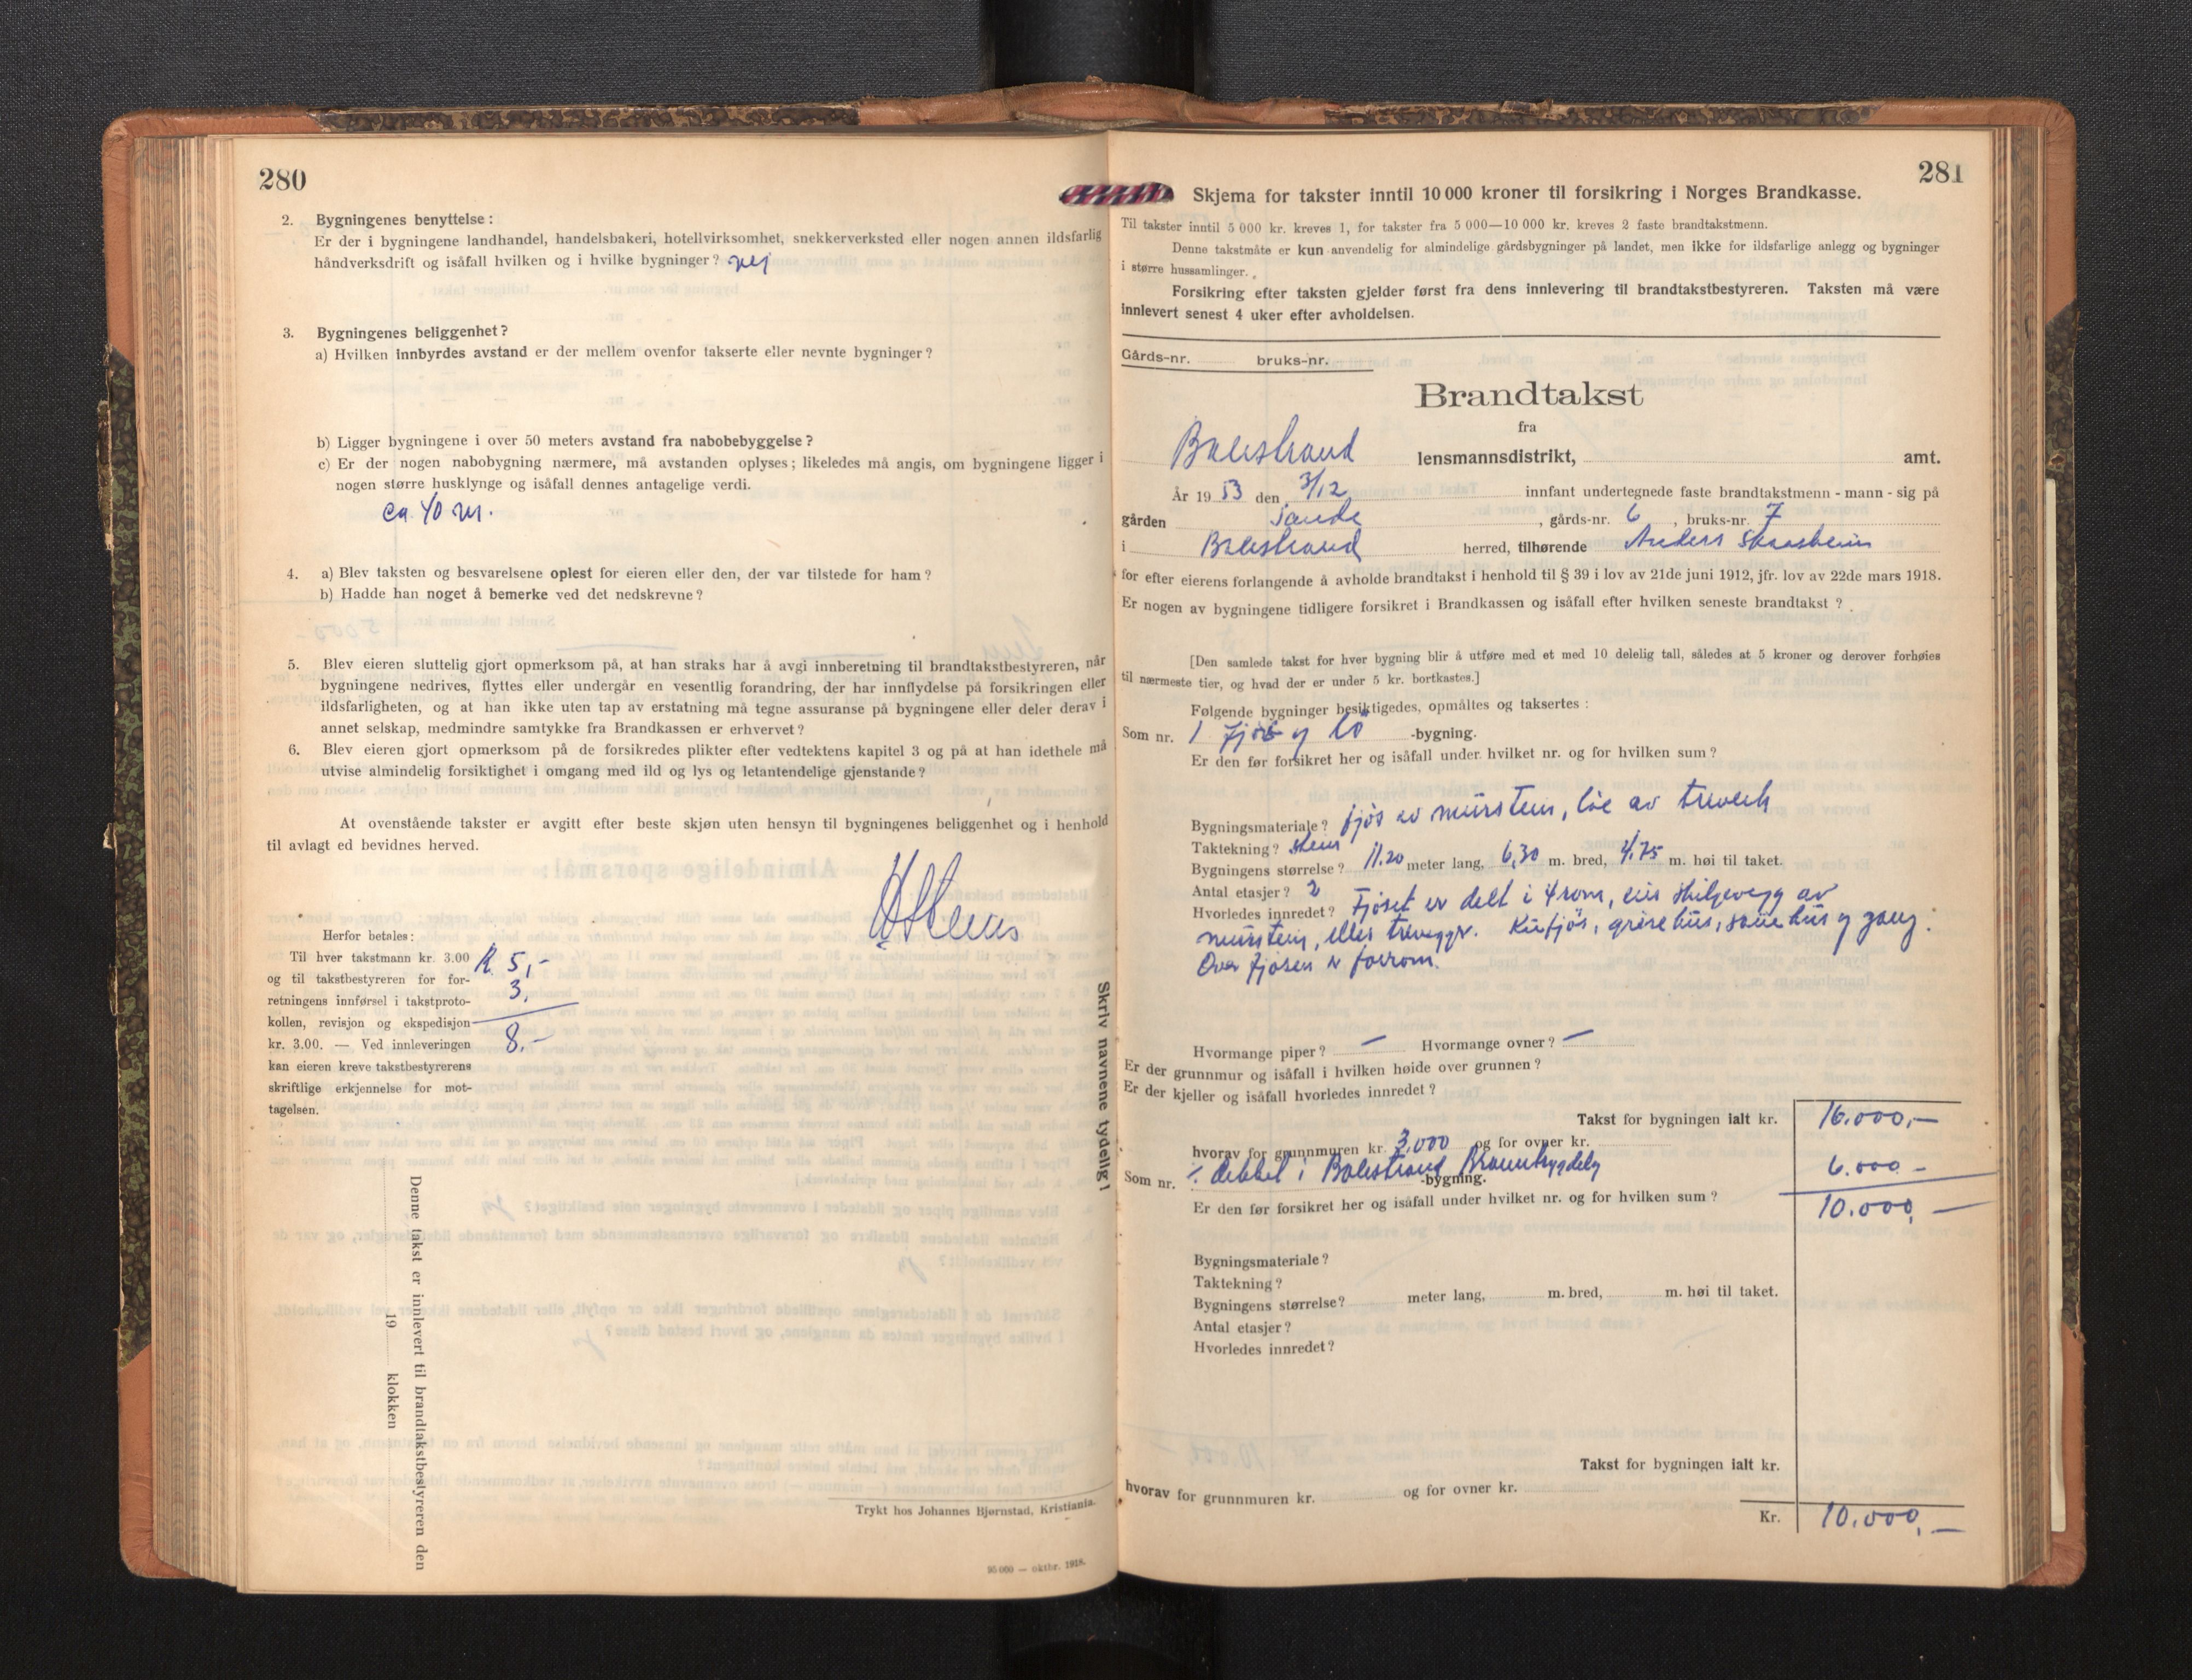 280
2. Bygningenes benyttelse:
Er der i bygningene landhandel, handelsbakeri, hotellvirksomhet, snekkerverksted eller nogen annen ildsfarlig
håndverksdrift og isåfall hvilken og i hvilke bygninger? nej
3. Bygningenes beliggenhet?
a) Hvilken innbyrdes avstand er der mellem ovenfor takserte eller nevnte bygninger?
b) Ligger bygningene i over 50 meters avstand fra nabobebyggelse?
c) Er der nogen nabobygning nærmere, må avstanden oplyses; likeledes må angis, om bygningene ligger i
nogen større husklynge og isåfall dennes antagelige verdi.
ca 40 m.
4. a) Blev taksten og besvarelsene oplest for eieren eller den, der var tilstede for ham?
b) Hadde han noget å bemerke ved det nedskrevne?
5. Blev eieren sluttelig gjort opmerksom på, at han straks har å avgi innberetning til brandtakstbestyreren, når
bygningene nedrives, flyttes eller undergår en vesentlig forandring, der har innflydelse på forsikringen eller
ildsfarligheten, og at han ikke uten tap av erstatning må tegne assuranse på bygningene eller deler derav i
annet selskap, medmindre samtykke fra Brandkassen er erhvervet?
6. Blev eieren gjort opmerksom på de forsikredes plikter efter vedtektens kapitel 3 og på at han idethele må
utvise almindelig forsiktighet i omgang med ild og lys og letantendelige gjenstande?
At ovenstående takster er avgitt efter beste skjøn uten hensyn til bygningenes beliggenhet og i henhold
til avlagt ed bevidnes herved.
Herfor betales:
Til hver takstmann kr. 3.00
og til takstbestyreren for for-
retningens innførsel i takstproto-
kollen, revisjon og ekspedisjon
kr. 3.00. — Ved innleveringen
kan eieren kreve takstbestyrerens
skriftlige erkjennelse for mot-
tagelsen.
5,-
3,
8,-
Skriv navnene tydelig!
Denne takst er innlevert til brandtakstbestyreren den
19 klokken
Trykt hos Johannes Bjørnstad, Kristiania.
95 000 — oktbr. 1918.
281
Skjema for takster inntil 10 000 kroner til forsikring i Norges Brandkasse.
Til takster inntil 5 000 kr. kreves 1, for takster fra 5 000—10 000 kr. kreves 2 faste brandtakstmenn.
Denne takstmåte er kun anvendelig for almindelige gårdsbygninger på landet, men ikke for ildsfarlige anlegg og bygninger
i større hussamlinger.
Forsikring efter taksten gjelder først fra dens innlevering til brandtakstbestyreren. Taksten må være
innlevert senest 4 uker efter avholdelsen.
Gårds-nr. bruks-nr.
Brandtakst
fra
Balestrand lensmannsdistrikt, amt.
År 1953 den 3/12 innfant undertegnede faste brandtakstmenn - mann - sig på
gården Sande, gårds-nr. 6, bruks-nr. 7
i Balestrand herred, tilhørende Anders Skaasheim
for efter eierens forlangende å avholde brandtakst i henhold til § 39 i lov av 21de juni 1912, jfr. lov av 22de mars 1918.
Er nogen av bygningene tidligere forsikret i Brandkassen og isåfall efter hvilken seneste brandtakst?
[Den samlede takst for hver bygning blir å utføre med et med 10 delelig tall, således at 5 kroner og derover forhøies
til nærmeste tier, og hvad der er under 5 kr. bortkastes.]
Følgende bygninger besiktigedes, opmåltes og taksertes:
Som nr. 1 Fjøs og lö -bygning.
Er den før forsikret her og isåfall under hvilket nr. og for hvilken sum?
Bygningsmateriale? fjøs av murstein, löe av treverk
Taktekning? skeur
Bygningens størrelse? 11.20 meter lang, 6,30 m. bred, 4,75 m. høi til taket.
Antal etasjer? 2
Hvorledes innredet? Fjøset er delt i 4 rom, ein skilgevegg av
murstein, elles trevegger. Kufjøs, grisehus, sauehus og gang.
Over fjøsen er forrom.
Hvormange piper? — Hvormange ovner? —
Er der grunnmur og isåfall i hvilken høide over grunnen?
Er der kjeller og isåfall hvorledes innredet?
Takst for bygningen ialt kr. 16.000,—
hvorav for grunnmuren kr. 3.000 og for ovner kr.
Som nr. ÷ dekket i Balestrand Branntrygdelag -bygning. 6.000 -
Er den før forsikret her og isåfall under hvilket nr. og for hvilken sum? 10.000,—
Bygningsmateriale?
Taktekning?
Bygningens størrelse? meter lang, m. bred, m. høi til taket.
Antal etasjer?
Hvorledes innredet?
Takst for bygningen ialt kr.
hvorav for grunnmuren kr. og for ovner kr.
Kr. 10.000,—